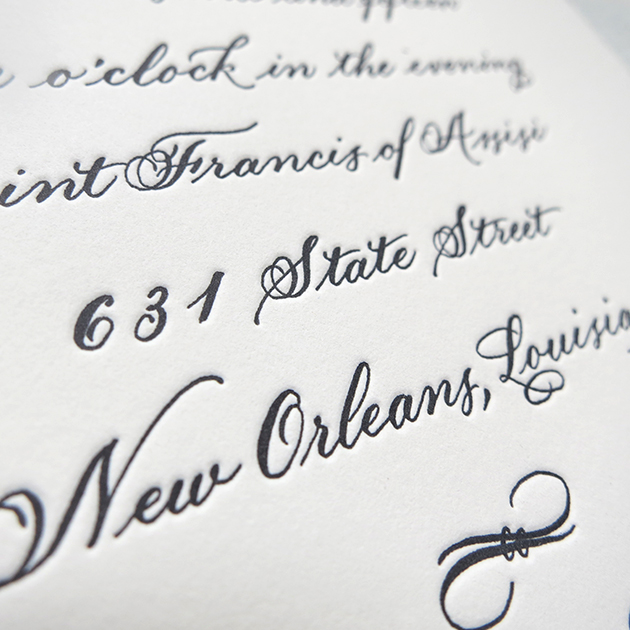 o'clock in the evening
int Francis of Assisi
631 State Street
New Orleans, Louisia